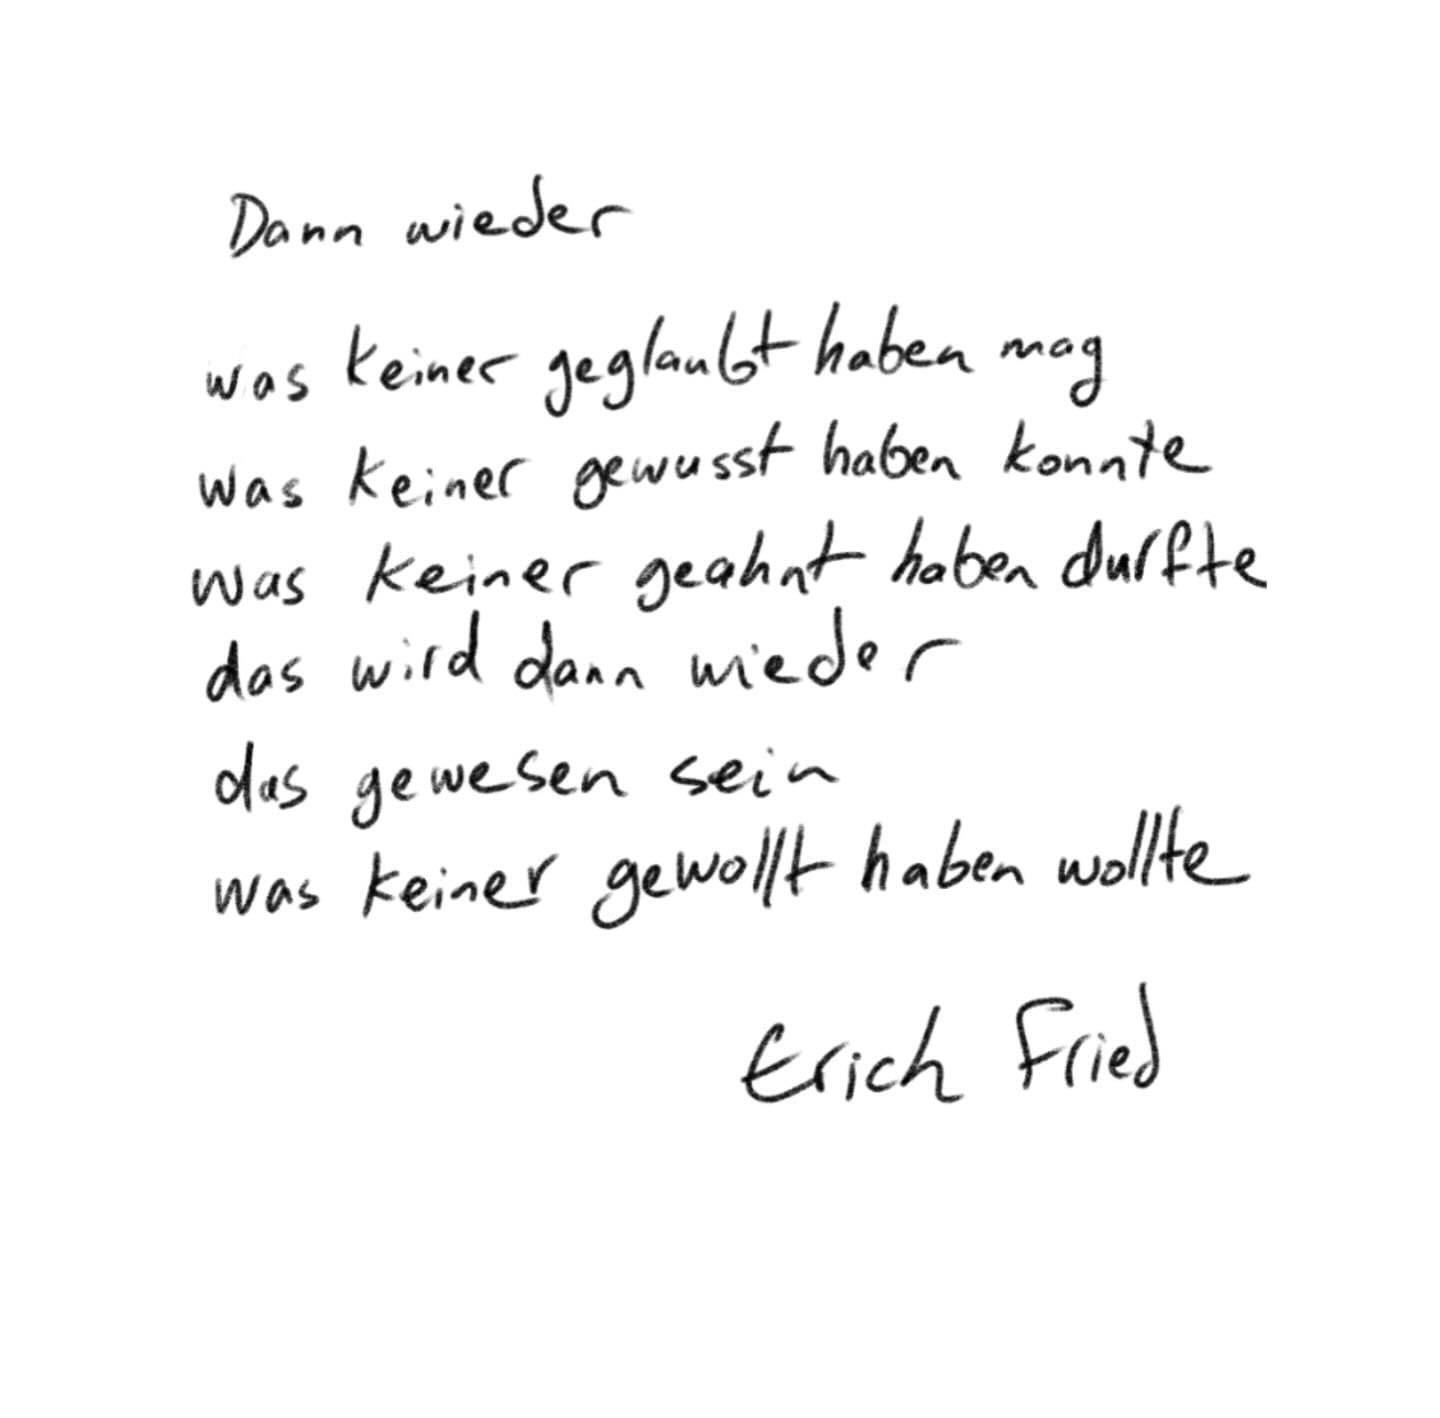 Dann wieder
was keiner geglaubt haben mag
was keiner gewusst haben konnte
was keiner geahnt haben durfte
das wird dann wieder
das gewesen sein
was keiner gewollt haben wollte
Erich Fried